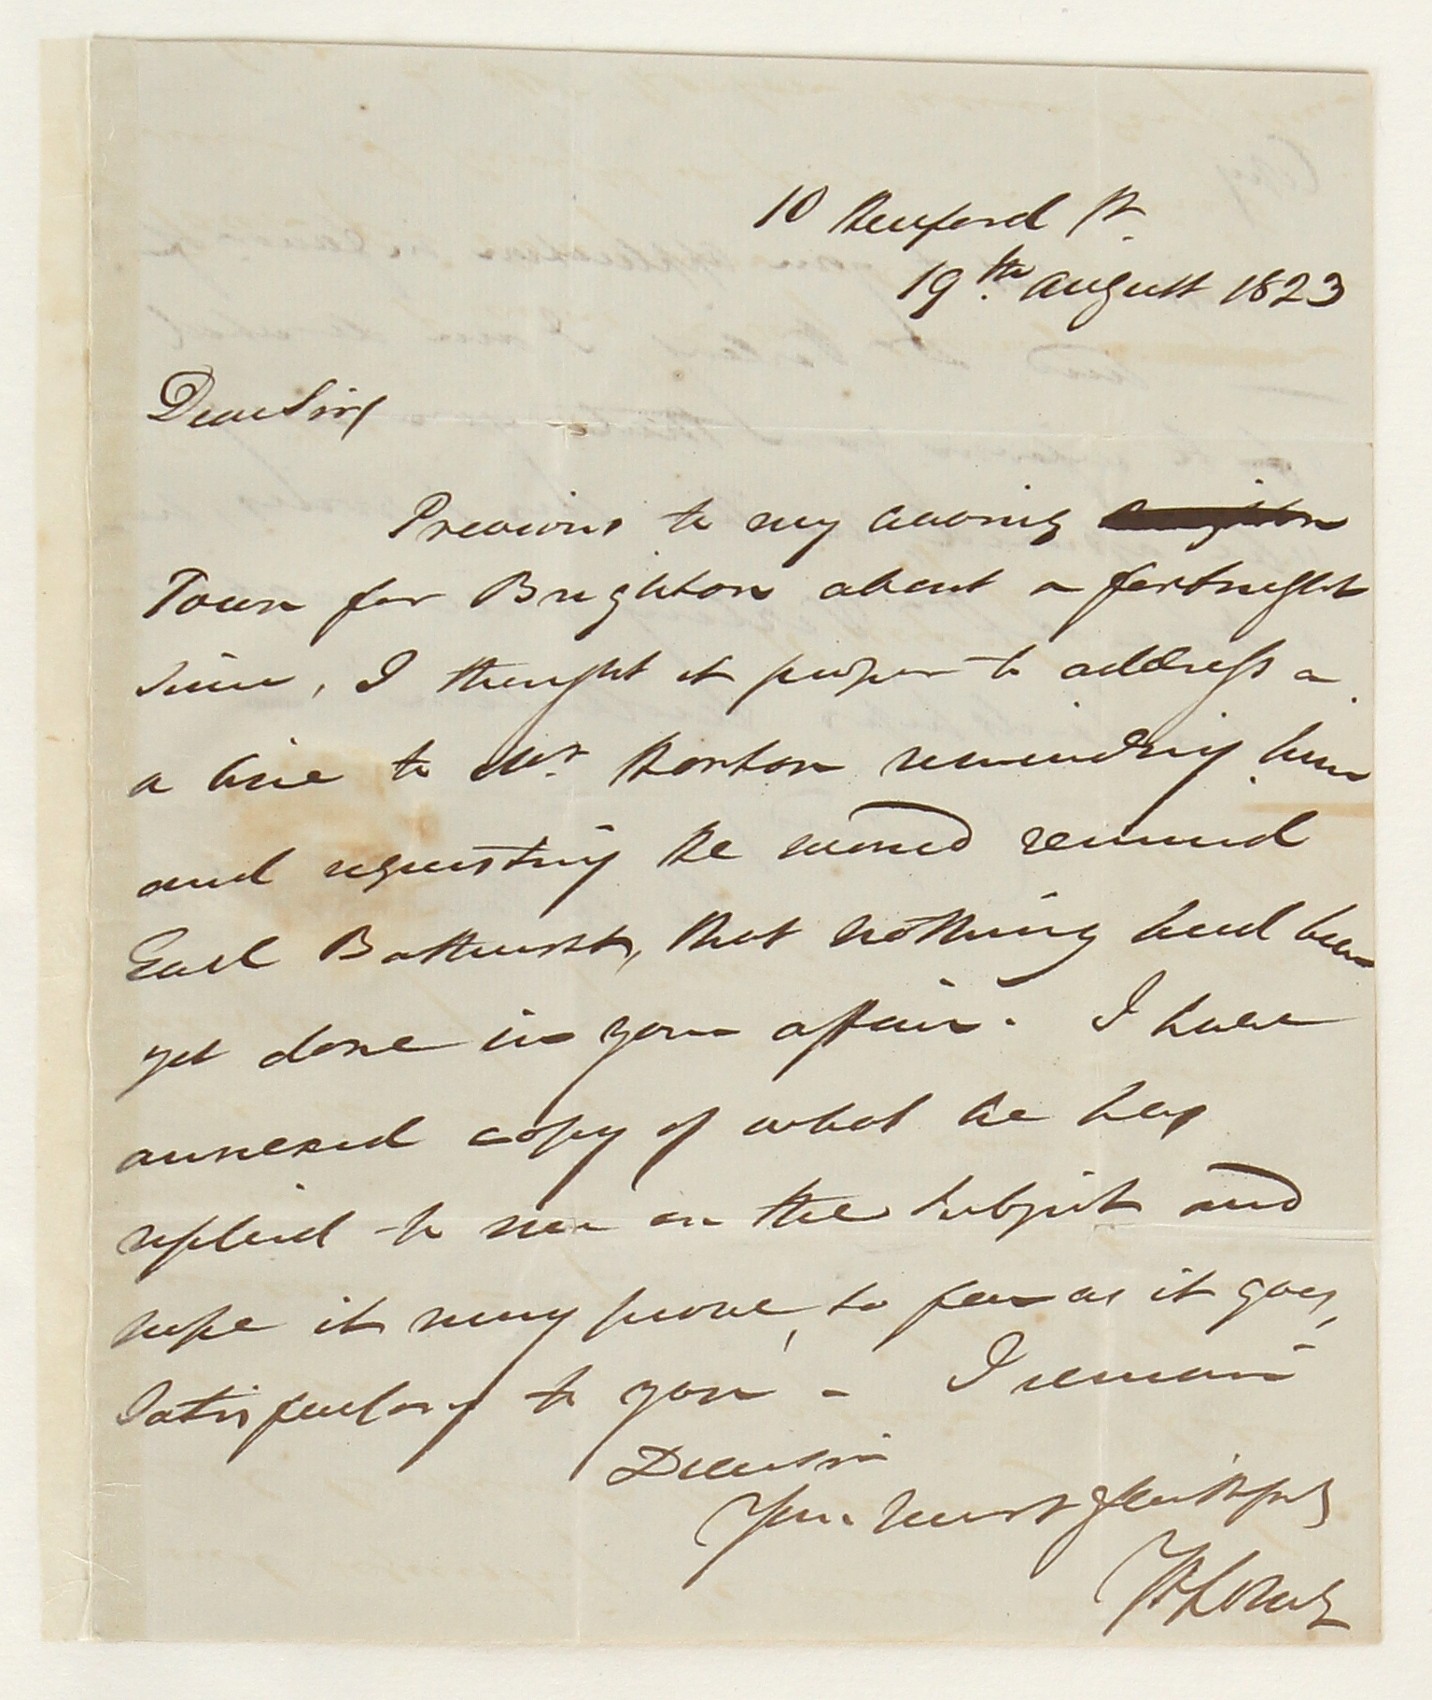 10 Hertford St.
19th. August 1823
Dear Sir/
Previous to my leaving
Town for Brighton about a fortnight
since, I thought it proper to address a
a line to Mr Horton reminding him
and requesting he would remind
Earl Bathurst, that nothing had been
yet done in your affair. I have
annexed copy of what he has
replied to me on the subject and
hope it may prove, so far as it goes,
Satisfactory to you - I remain
Dear Sir
Your most faithfully